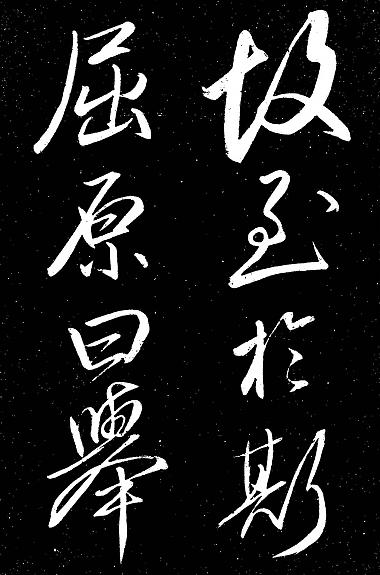 故至於斯
屈原曰舉